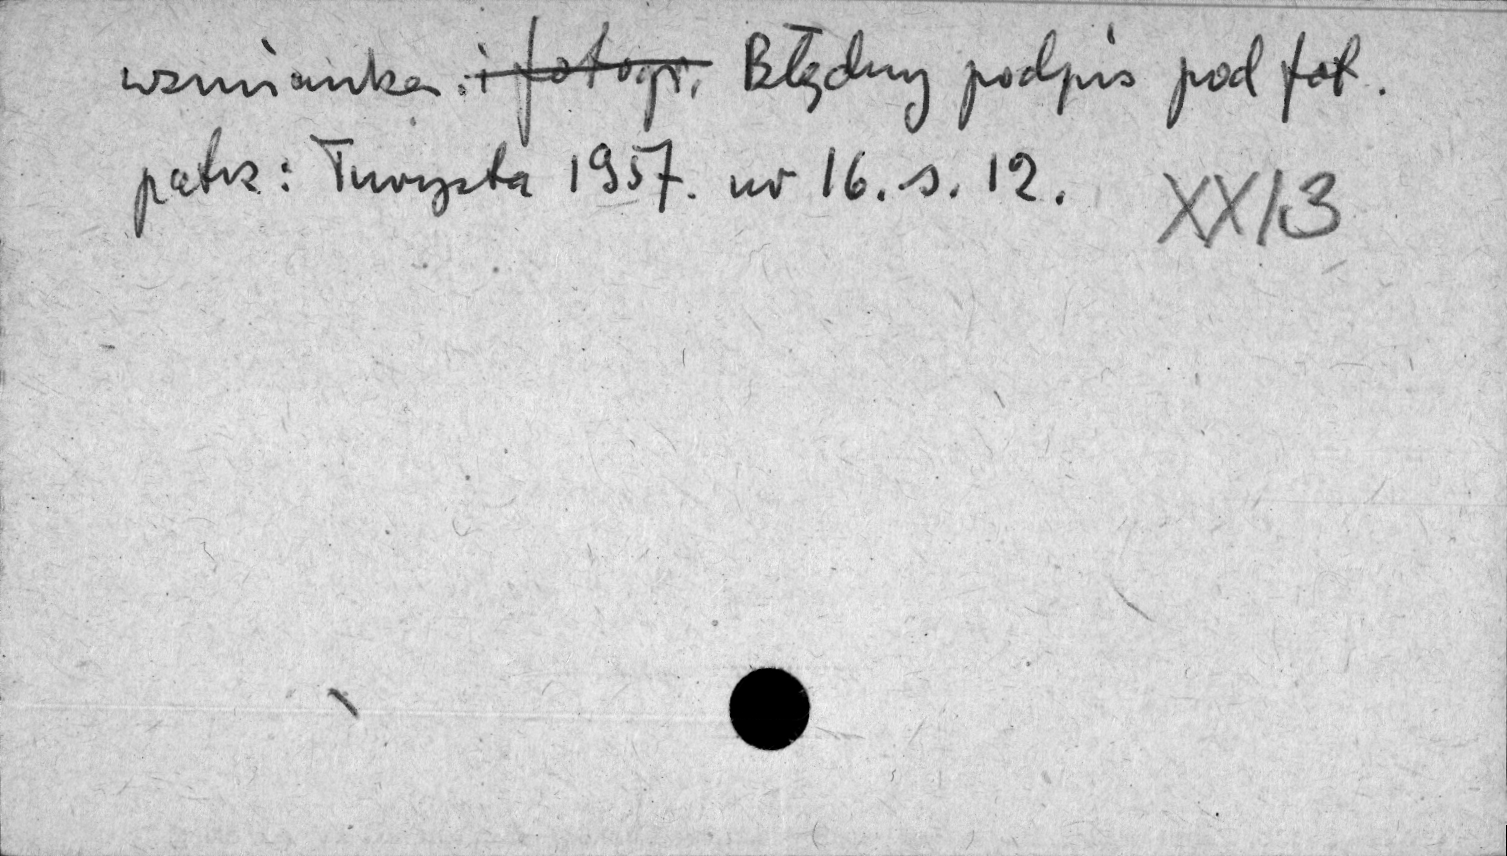 wzmianka. i fotogr. Błędny podpis pod fot.
patrz: Turysta 1957. nr 16. s. 12.
XX/3